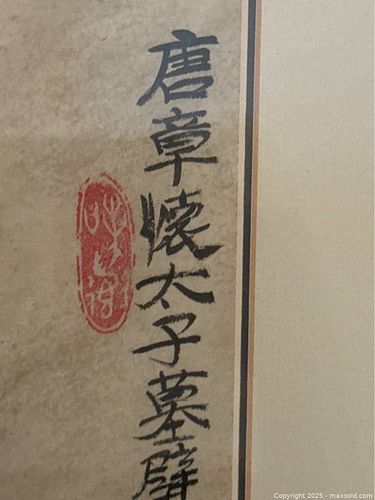 唐章懷太子墓壁
Copyright 2025 - maxsold.com